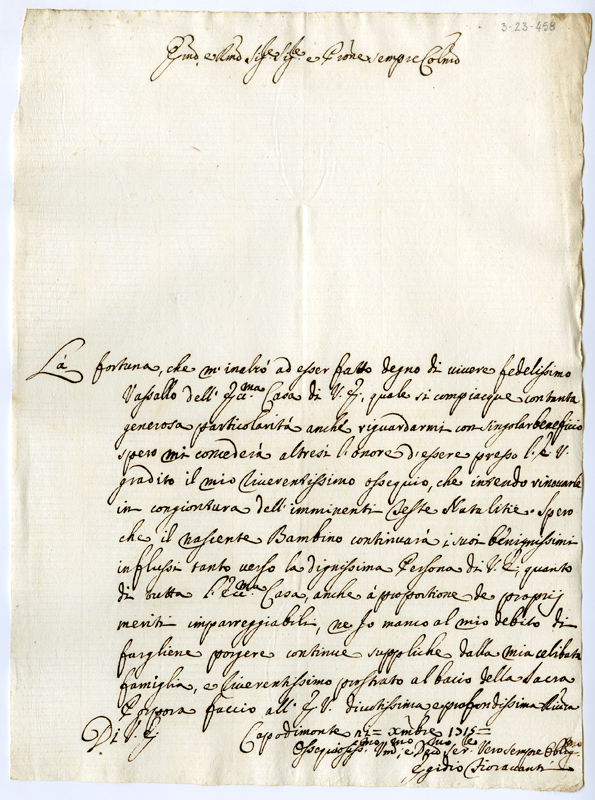 3-23-458
Emo. e Rmo Sig.re Sig.re e Prone sempre Colmo
La fortuna, che m'inalzò ad esser fatto degno di vivere fedelissimo
Vassallo dell'Ecc.ma Casa di V. E., quale si compiacque con tanta
generosa particolarità anche riguardarmi con singolar beneficio
spero mi concederà altresi l'onore d'essere presso l'E. V.
gradito il mio riverentissimo ossequio, che intendo rinovarle
in congiontura dell'imminenti feste Natalitie. Spero
che il nascente Bambino continuarà i suoi benignissimi
influssi tanto verso la dignissima Persona di V. E., quanto
di tutta l'Ecc.ma Casa, anche à proportione de proprij
meriti impareggiabili, ne Io manco al mio debito di
fargliene porgere continue suppliche dalla mia celibata
famiglia, e riverentissimo prostrato al bacio della Sacra
Porpora faccio all'E. V. divotissima e profondissima Riv.za
Di V. E.
Capodimonte xmbre 1715
Ossequiosiss.mo Um.mo e Dev.mo Ser.re Vero sempre Oblig.mo
Egidio Fioravanti